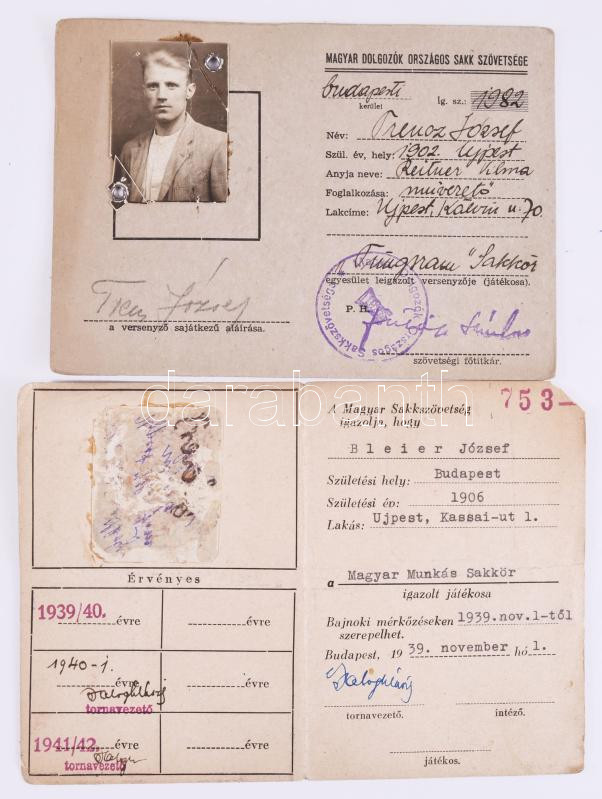 MAGYAR DOLGOZÓK ORSZÁGOS SAKK SZÖVETSÉGE
budapesti
kerület
Ig. sz.: 1982
Név: Trencz József
Szül. év, hely: 1902. Ujpest
Anyja neve: Reitner Vilma
Foglalkozása: művezető
Lakcíme: Ujpest, Kálvin u. 70.
"Tungsram" Sakkör
egyesület leigazolt versenyzője (játékosa).
P. H.
szövetségi főtitkár.
József
a versenyző sajátkezű aláírása.
darabanth
753-
A Magyar Sakkszövetség
igazolja, hogy
Bleier József
Születési hely: Budapest
Születési év: 1906
Lakás: Ujpest, Kassai-ut 1.
a Magyar Munkás Sakkör
igazolt játékosa
Bajnoki mérkőzéseken 1939.nov.1-től
szerepelhet.
Budapest, 19 39. november hó 1.
tornavezető.
intéző.
játékos.
Érvényes
1939/40. évre
évre
1940-1.
évre
évre
tornavezető
1941/42. évre
évre
tornavezető